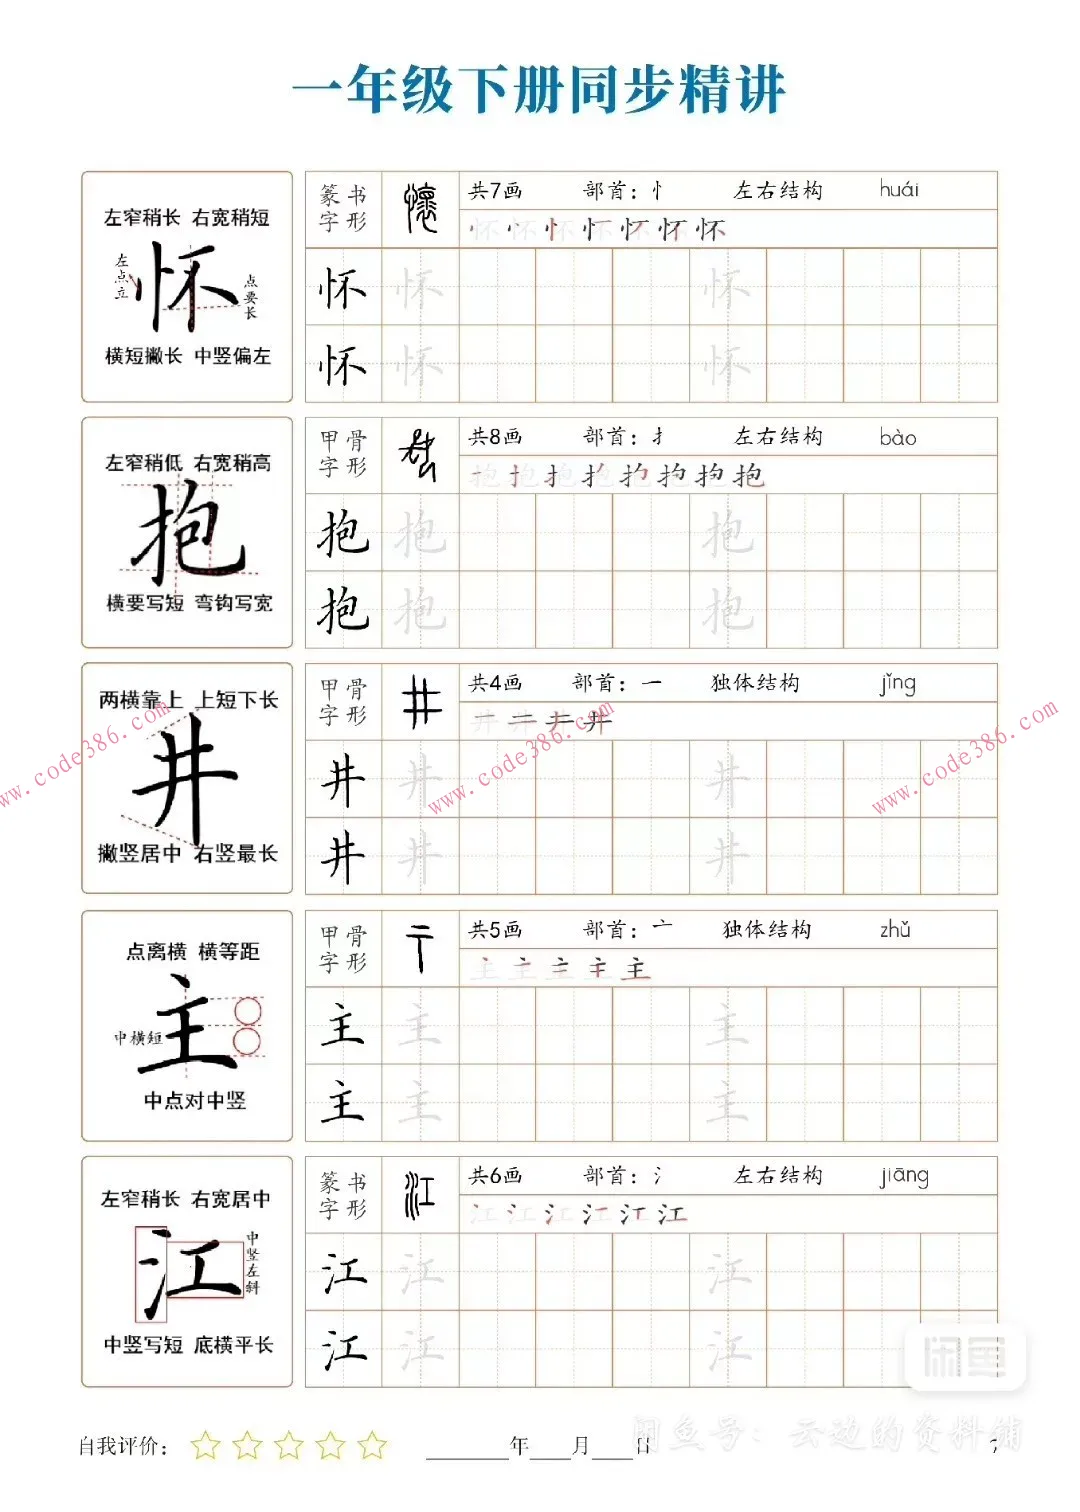 一年级下册同步精讲
左窄稍长 右宽稍短
左点立
怀
点要长
横短撇长 中竖偏左
篆书字形
懷
共7画 部首：忄 左右结构 huái
怀 怀 怀 怀 怀 怀 怀
怀 怀 怀
怀 怀 怀
左窄稍低 右宽稍高
抱
横要写短 弯钩写宽
甲骨字形
共8画 部首：扌 左右结构 bào
抱 抱 抱 抱 抱 抱 抱 抱
抱 抱 抱
抱 抱 抱
两横靠上 上短下长
井
撇竖居中 右竖最长
甲骨字形
井
共4画 部首：一 独体结构 jǐng
井 井 井 井
井 井 井
井 井 井
www.code386.com www.code386.com www.code386.com
点离横 横等距
中横短
主
中点对中竖
甲骨字形
共5画 部首：亠 独体结构 zhǔ
主 主 主 主 主
主 主 主
主 主 主
左窄稍长 右宽居中
江
中竖左斜
中竖写短 底横平长
篆书字形
江
共6画 部首：氵 左右结构 jiāng
江 江 江 江 江 江
江 江 江
江 江 江
闲鱼
自我评价： 年 月 日
闲鱼号：云边的资料铺
7